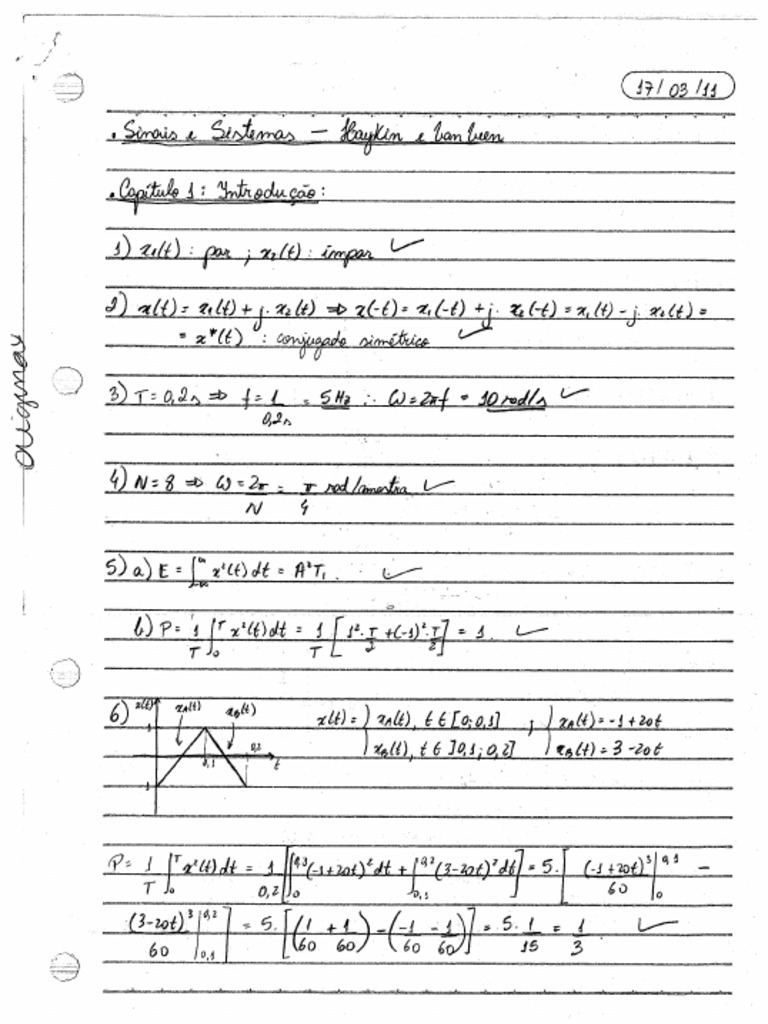 17/03/11
. Sinais e Sistemas — Haykin e Van Veen
. Capítulo 1: Introdução:
1) x₁(t): par ; x₂(t): ímpar ✓
2) x(t) = x₁(t) + j. x₂(t) ⇒ x(-t) = x₁(-t) + j. x₂(-t) = x₁(t) - j. x₂(t) =
= x*(t) : conjugado simétrico ✓
3) T = 0,2s ⇒ f = 1/0,2s = 5 Hz ∴ ω = 2πf = 10 rad/s ✓
4) N = 8 ⇒ ω = 2π/N = π/4 rad/amostra ✓
5) a) E = ∫_{-∞}^{∞} x²(t) dt = A²T₁. ✓
b) P = 1/T ∫₀ᵀ x²(t) dt = 1/T [1². T/2 + (-1)². T/2] = 1. ✓
6) x(t) x_A(t) x_B(t) 1 0,1 0,2 t -1 x(t) = { x_A(t), t ∈ [0; 0,1] ; { x_A(t) = -1 + 20t
x_B(t), t ∈ ]0,1 ; 0,2] x_B(t) = 3 - 20t
P = 1/T ∫₀ᵀ x²(t) dt = 1/0,2 [∫₀^{0,1} (-1+20t)² dt + ∫_{0,1}^{0,2} (3-20t)² dt] = 5. [ (-1+20t)³/60 |₀^{0,1} -
(3-20t)³/60 |_{0,1}^{0,2} ] = 5. [(1/60 + 1/60) - (-1/60 - 1/60)] = 5. 1/15 = 1/3 ✓